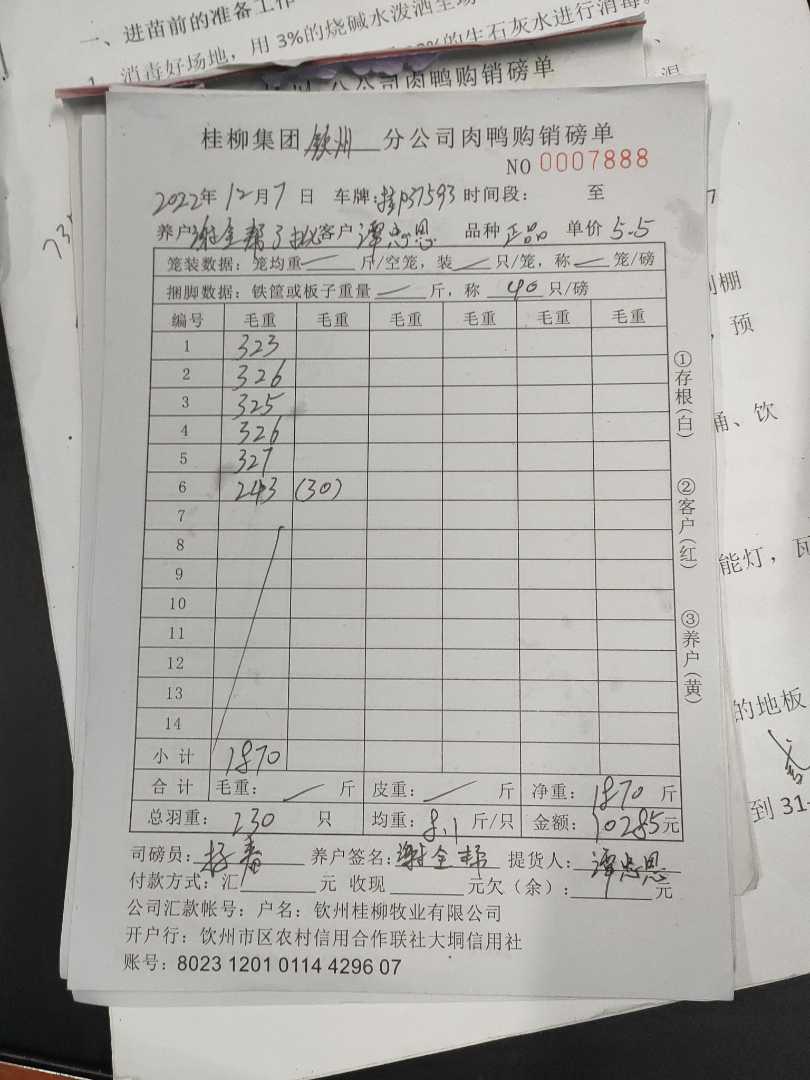 一、进苗前的准备工作
消毒好场地，用 3%的烧碱水泼洒全场
%的生石灰水进行消毒。
公司肉鸭购销磅单
桂柳集团 钦州 分公司肉鸭购销磅单
NO 0007888
2022年 12月 7 日 车牌：桂P37593 时间段： 至
养户 谢全帮 客户 谭忠恩 品种 正品 单价 5.5
笼装数据：笼均重 斤/空笼，装 只/笼，称 笼/磅
捆脚数据：铁筐或板子重量 斤，称 40 只/磅
编号 毛重 毛重 毛重 毛重 毛重 毛重
1 323
2 326
3 325
4 326
5 327
6 243 (30)
7
8
9
10
11
12
13
14
小计 1870
合计 毛重： 斤 皮重： 斤 净重：1870 斤
总羽重：230 只 均重：8.1 斤/只 金额：10285元
司磅员：杨春 养户签名：谢全帮 提货人：谭忠恩
付款方式：汇 元 收现 元欠（余）： 元
公司汇款帐号：户名：钦州桂柳牧业有限公司
开户行：钦州市区农村信用合作联社大垌信用社
账号：8023 1201 0114 4296 07
①存根(白)
②客户(红)
③养户(黄)
棚
，预
桶、饮
能灯，瓦
的地板
到 31-